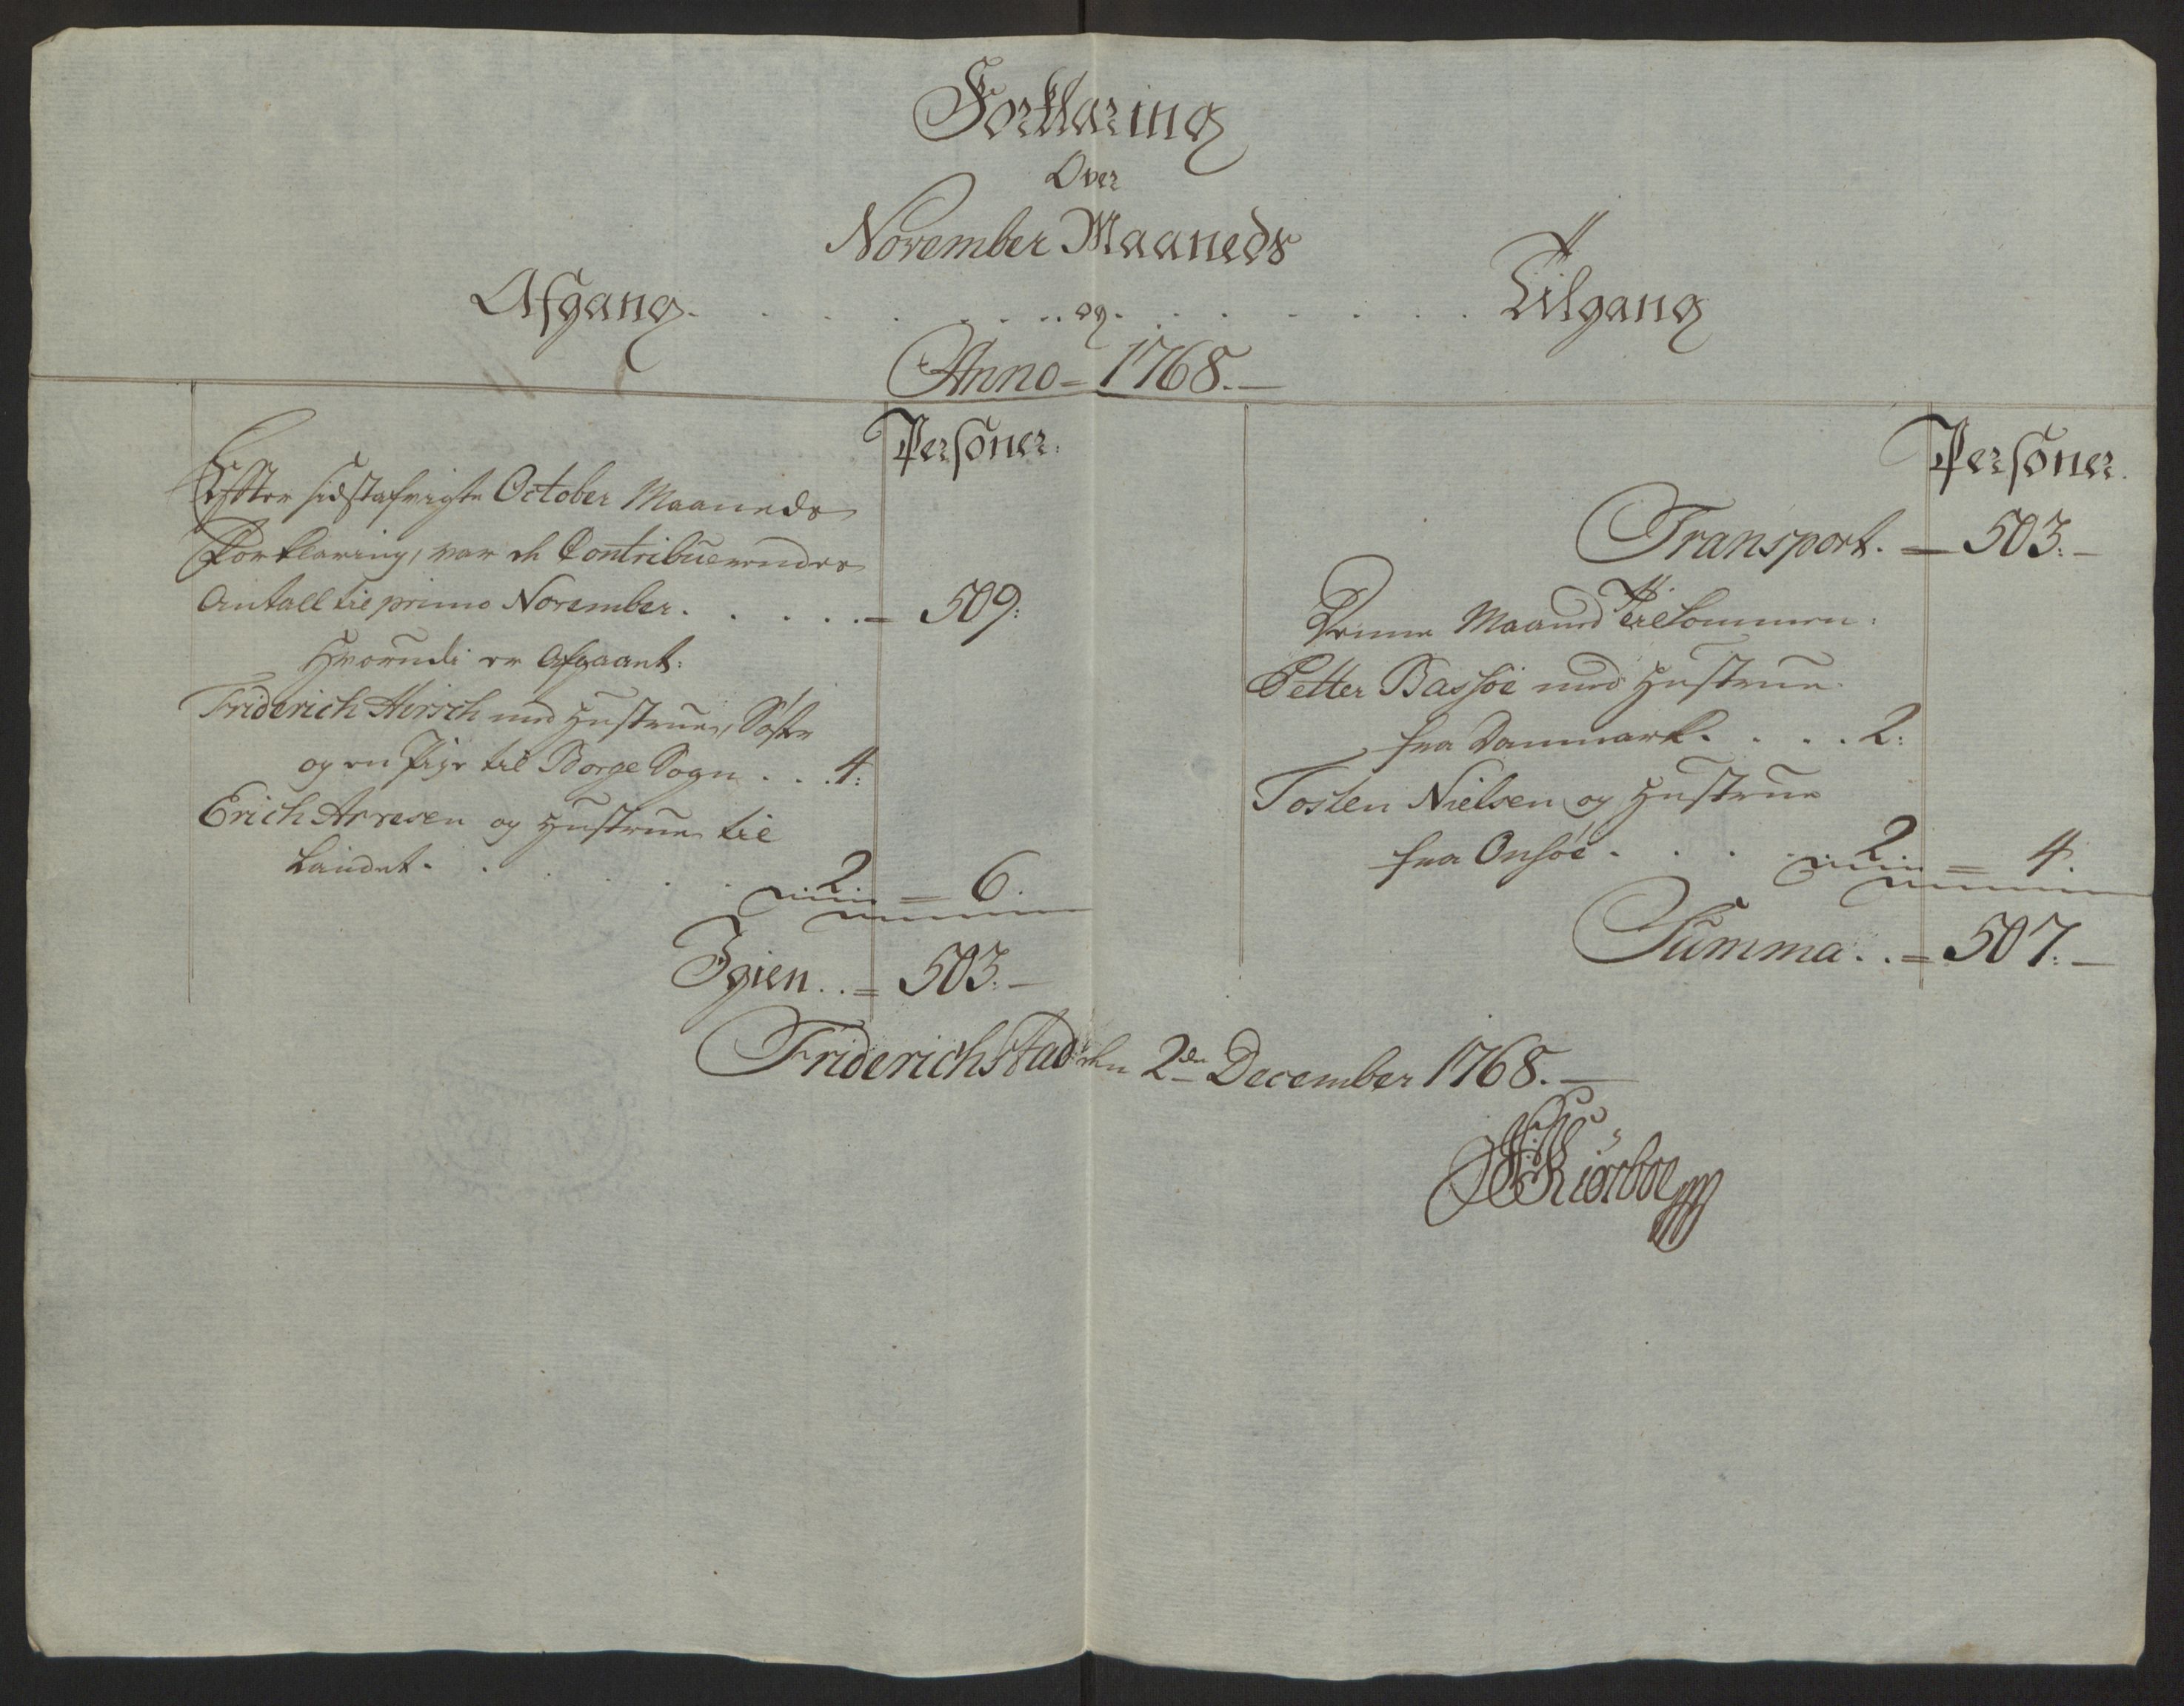 Forklaring
Over
November Maaneds
Afgang. . . . . . . og. . . . . . . Tilgang
Anno = 1768. —
Personer.
Effter sidstafvigte October Maaneds
Forklaring, var de Contribuerendes
Antall til primo November. . . . . = 509:
Hvorudi er Afgaaet:
Friderich Hirsch med Hustrue, Søster
og en Pige til Borge Sogn . . . 4:
Erich Arvesen og Hustrue til
Landet. . . . . . 2. = 6.
Igien . . = 503. —
Personer.
Transport. — 503. —
Denne Maaned Tilkommen:
Petter Bassøe med Hustrue
fra Danmark. . . . . 2:
Tosten Nielsen og Hustrue
fra Onsøe . . . . 2. = 4.
Summa . . = 507. —
Friderichstad den 2den December 1768. —
Kiørboe